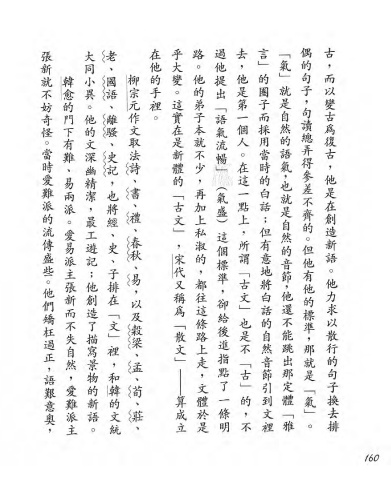 古，而以變古爲復古，他是在創造新語。他力求以散行的句子換去排
偶的句子，句讀總弄得參差不齊的。但他有他的標準，那就是「氣」。
「氣」就是自然的語氣，也就是自然的音節，他還不能跳出那定體「雅
言」的圈子而採用當時的白話；但有意地將白話的自然音節引到文裡
去，他是第一個人。在這一點上，所謂「古文」也是不「古」的，不
過他提出「語氣流暢」（氣盛）這個標準，卻給後進指點了一條明
路。他的弟子本就不少，再加上私淑的，都往這條路上走，文體於是
乎大變。這實在是新體的「古文」，宋代又稱爲「散文」——算成立
在他的手裡。
柳宗元作文取法詩、書、禮、春秋、易，以及穀梁、孟、荀、莊、
老、國語、離騷、史記，也將經、史、子排在「文」裡，和韓的文統
大同小異。他的文深幽精潔，最工遊記；他創造了描寫景物的新語。
韓愈的門下有難、易兩派。愛易派主張新而不失自然，愛難派主
張新就不妨奇怪。當時愛難派的流傳盛些。他們矯枉過正，語艱意奧，
160